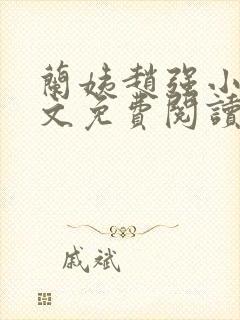 蘭姨趙強小
文免費閱讀
戚斌